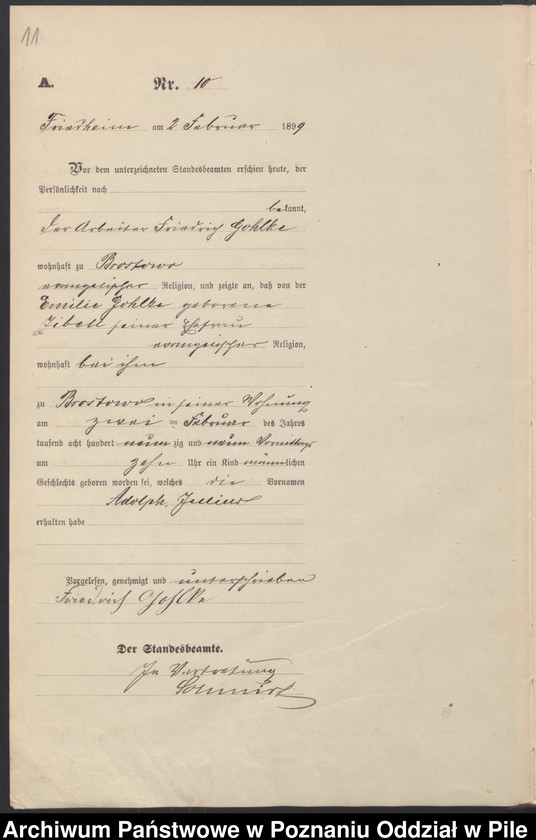 11
A. Nr. 10
Friedheim am 2 Februar 1899
Vor dem unterzeichneten Standesbeamten erschien heute, der
Persönlichkeit nach
bekannt,
der Arbeiter Friedrich Gohlke
wohnhaft zu Brostowo
evangelischer Religion, und zeigte an, daß von der
Emilie Gohlke geborene
Zibell seiner Ehefrau
evangelischer Religion,
wohnhaft bei ihm
zu Brostowo in seiner Wohnung
am zwei ten Februar des Jahres
tausend acht hundert neun zig und neun Vormittags
um zehn Uhr ein Kind männlichen
Geschlechts geboren worden sei, welches die Vornamen
Adolph, Julius
erhalten habe
Vorgelesen, genehmigt und unterschrieben
Friedrich Gohlke
Der Standesbeamte.
In Vertretung
Archiwum Państwowe w Poznaniu Oddział w Pile